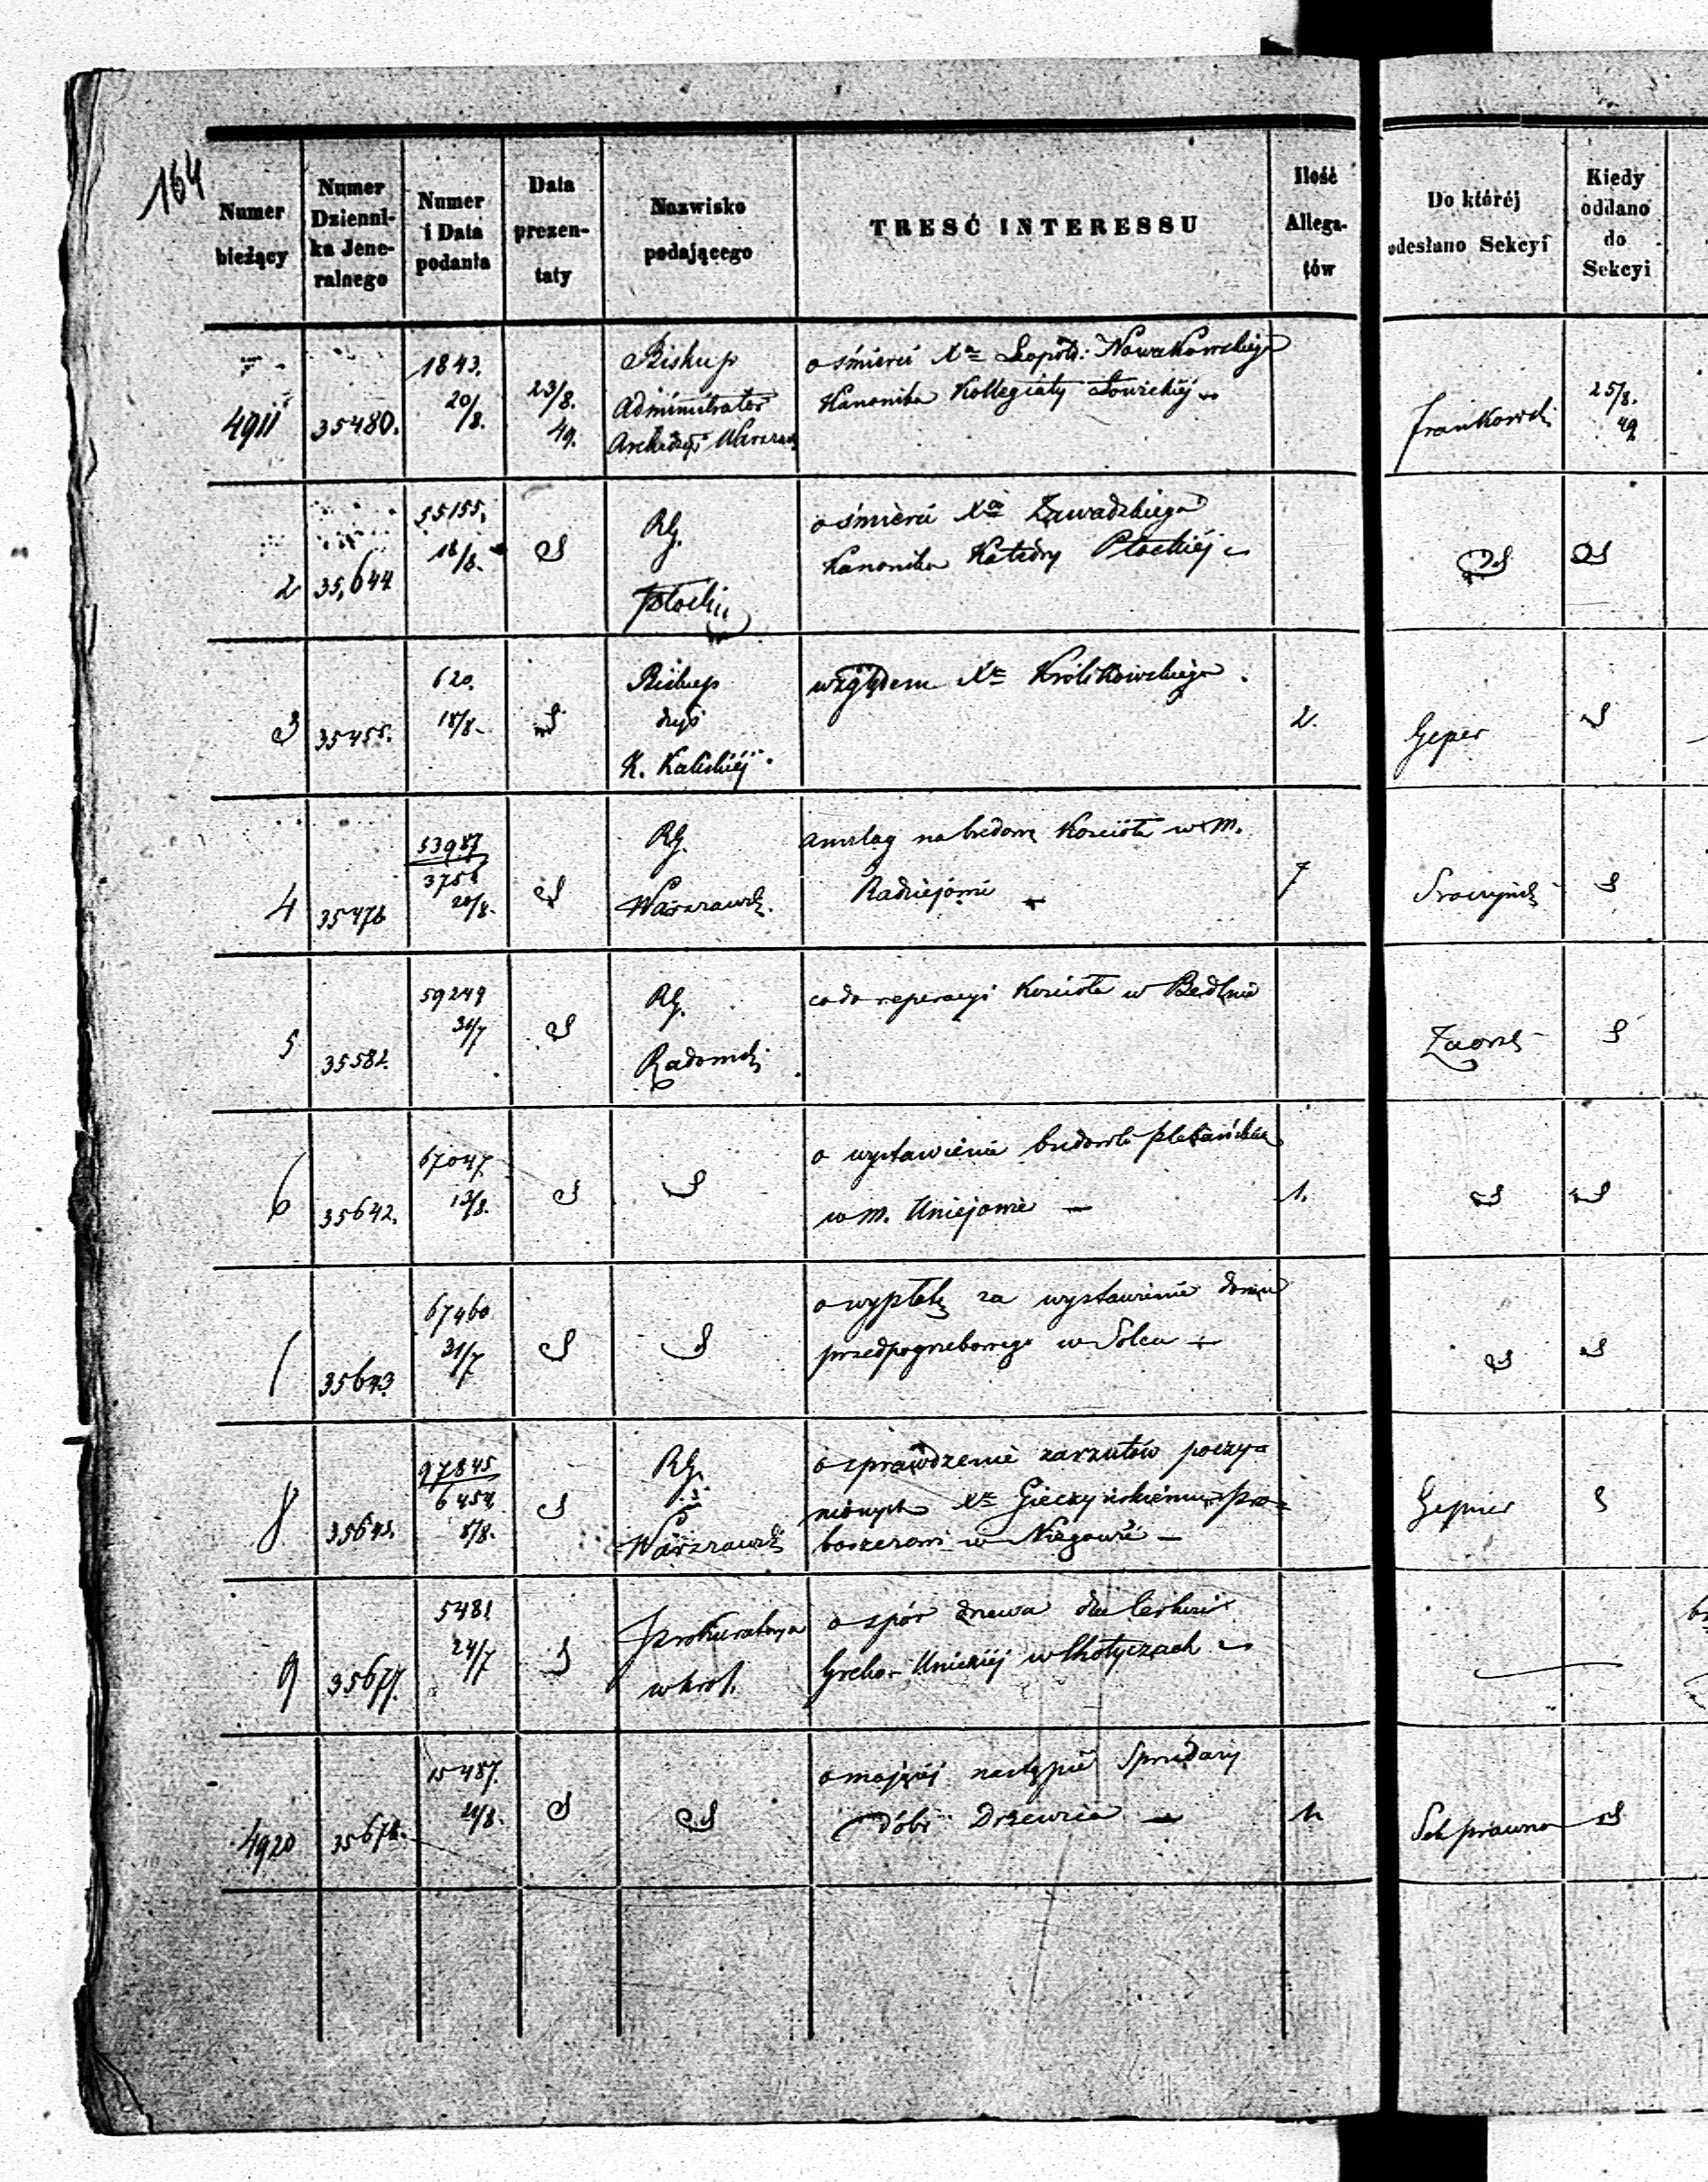 164
Numer bieżący | Numer Dziennika Jeneralnego | Numer i Data podania | Data prezentaty | Nazwisko podającego | TRESĆ INTERESSU | Ilość Allegatów | Do któréj odesłano Sekcyi | Kiedy oddano do Sekcyi
4911 | 35480. | 1843. 20/8. | 23/8. 49. | Biskup Administrator Archidyi Warszaw. | o śmierci Xa Leopold: Nowakowskiego
Kanonika Kollegiaty Łowickiéj | | Frankowski | 25/8. 49
2 | 35,644 | 55155, 18/8. | | RG. Płocki | o śmierci Xa Zawadzkiego
Kanonika Katedry Płockiéj
3 | 35455. | 620. 18/8. | | Biskup dyi K. Kaliskiéj. | względem Xa Królikowskiego. | 2. | Geper
4 | 35476 | 53987 3756 20/8. | | RG. Warszawsk. | anszlag na budowę Kościoła w M.
Radziejowie | 7 | Sroczyńsk
5 | 35582. | 59249 31/7 | | RG. Radomsk. | co do reperacyi Kościoła w Bedlnie | | Zaorsk
6 | 35642. | 67047. 13/8. | | | o wystawienie budowli plebańskich
w M. Uniejowie — | 1.
35643 | 67460 31/7 | | | o wypłatę za wystawienie domu
przedpogrzebowego w Solcu —
8 | 35645. | 97845 6454 8/8. | | RG. Warszawsk | o sprawdzenie zarzutów poczy=
nionych Xu Gieczyńskiemu Pro=
boszczowi w Niegowie — | | Gepner
9 | 35677. | 5481 24/7 | | Prokuratorya w król. | o spór drzewa dla Cerkwi
Grecko-Unickiéj w Chotyczach
4920 | 35678. | 15487. 21/8. | | | o mającéj nastąpić Sprzedaży
dóbr Drzewica — | 1. | Sek prawna